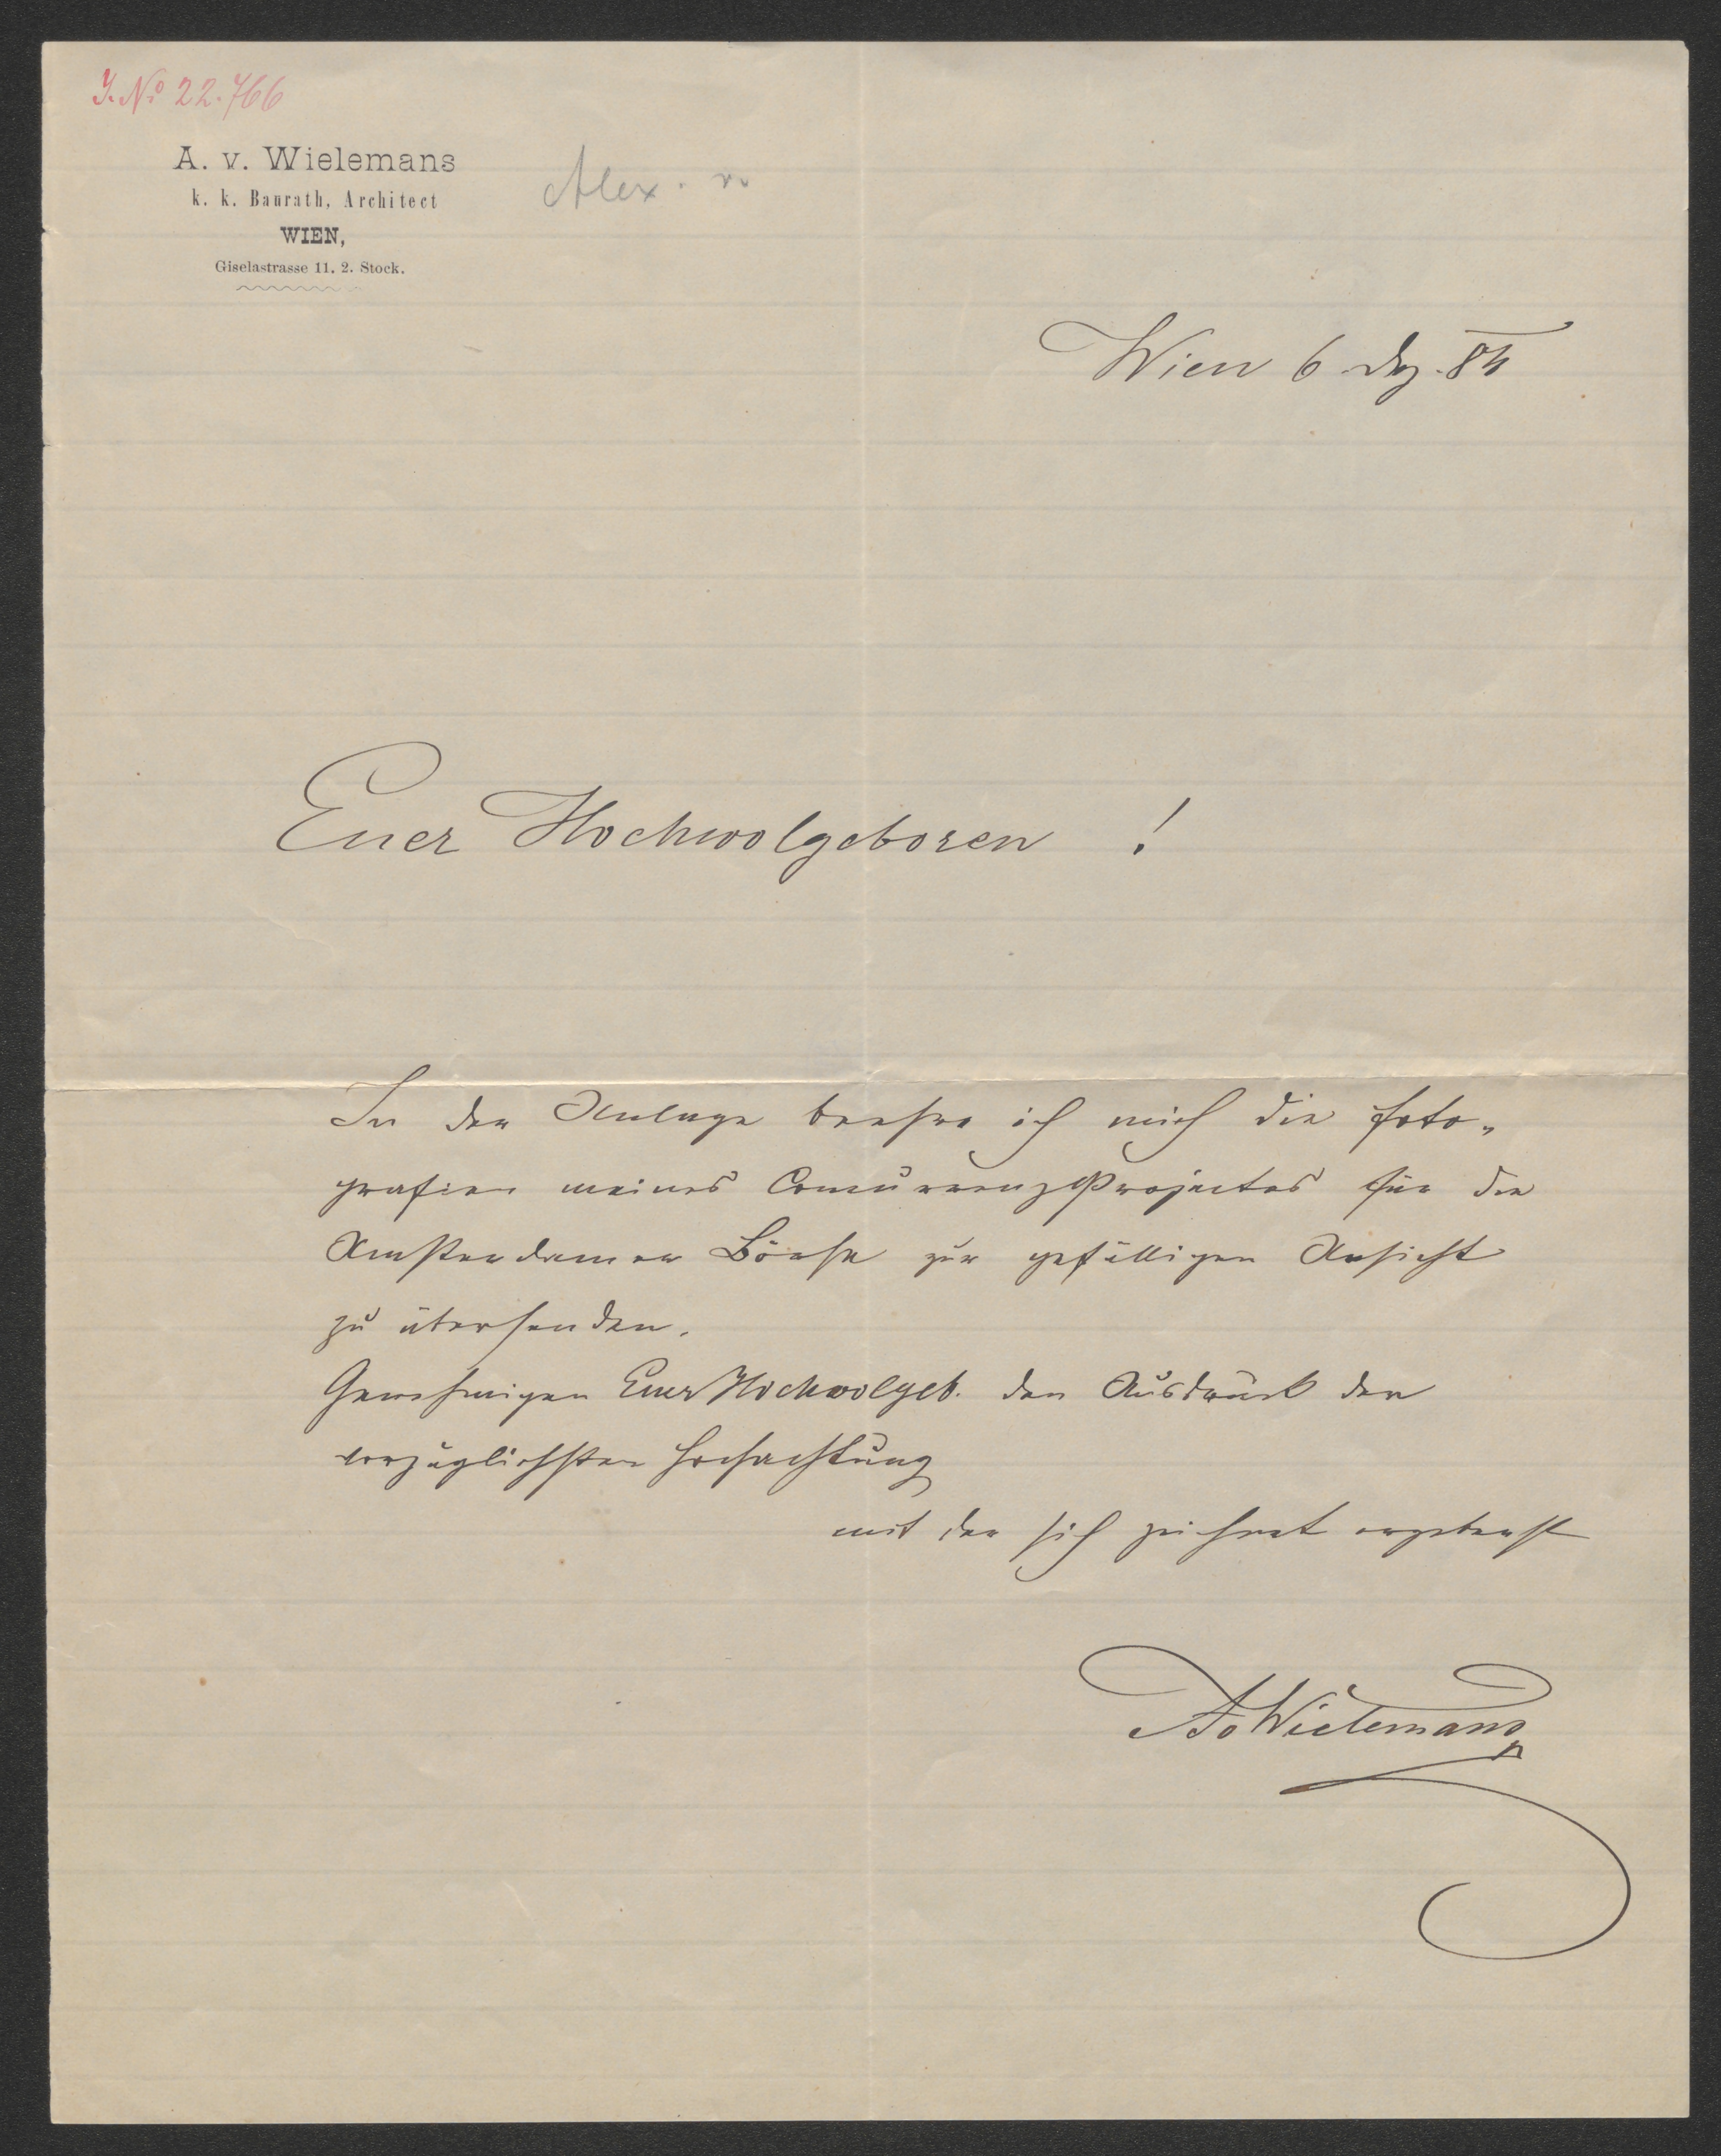 J. No 22.766
A. v. Wielemans
k. k. Baurath, Architect
WIEN,
Giselastrasse 11. 2. Stock.
Alex. v.
Wien 6. Dez.
Euer Hochwolgeboren !
In der Anlage beehre ich mich die Foto„
grafien meines ConcurrenzProjectes für die
Amsterdamer Börse zur gefälligen Ansicht
zu übersenden.
Genehmigen Euer Hochwolgeb. den Ausdruck der
vorzüglichsten Hochachtung
mit der sich zeichnet ergebenst
AvWielemans